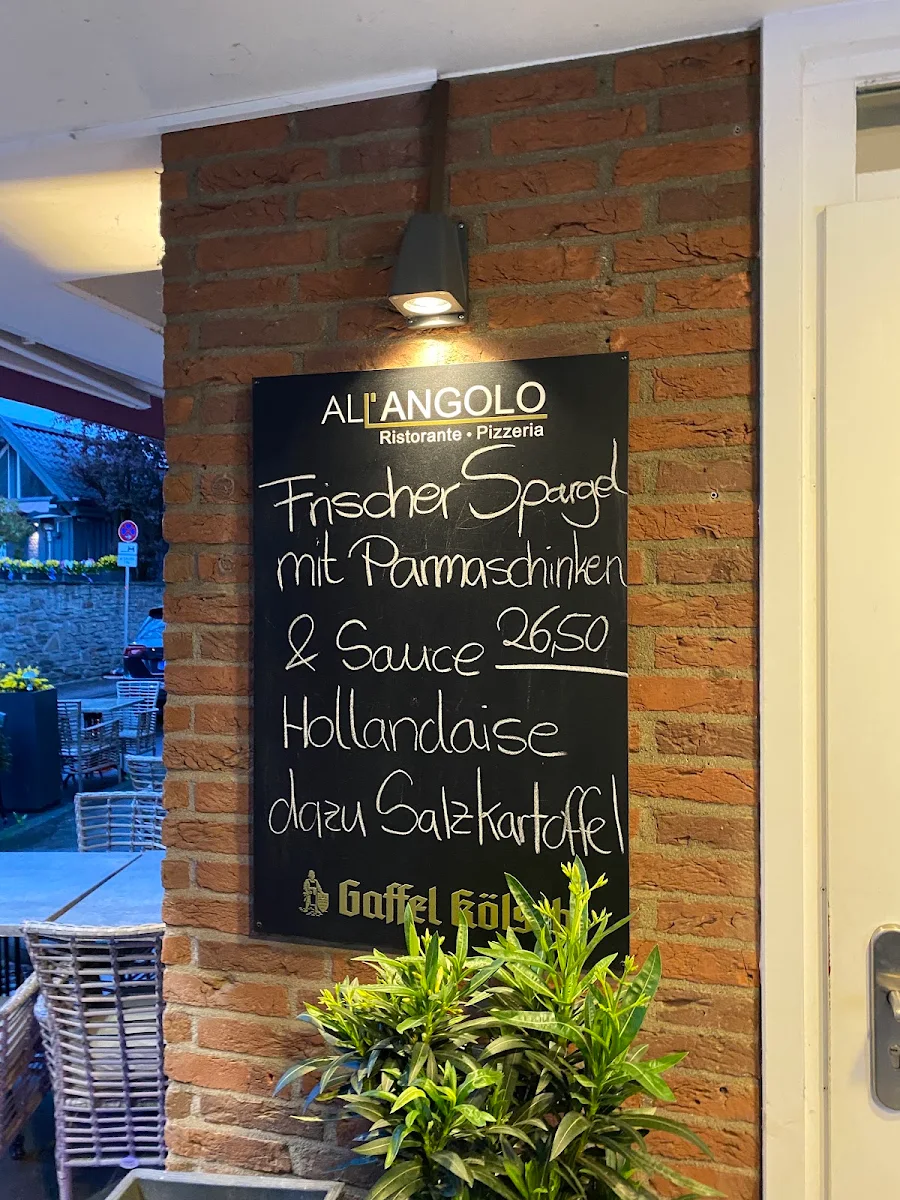 ALL'ANGOLO
Ristorante • Pizzeria
Frischer Spargel
mit Parmaschinken
& Sauce 26,50
Hollandaise
dazu Salzkartoffel
Gaffel Kölsch